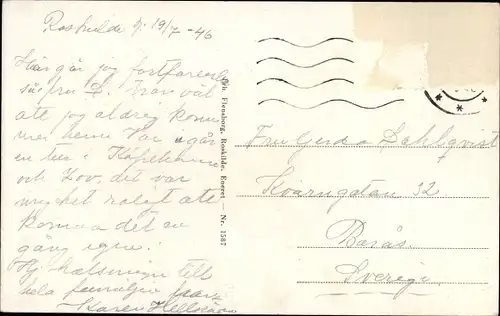 Roskilde d. 19/7 - 46
Här går jag fortfarande
så fru D. Tror väl
att jag aldrig kommer
mer hem. Var igår
en tur i Köpenhamn
och Zoo, det var
mycket roligt att
komma dit en
gång igen.
Hj. hälsningar till
hela familjen från
Karen
Ph. Flensborg, Roskilde. Eneret — Nr. 1587
Fru Gerda Dahlqvist
Kvarngatan 32
Borås.
Sverige